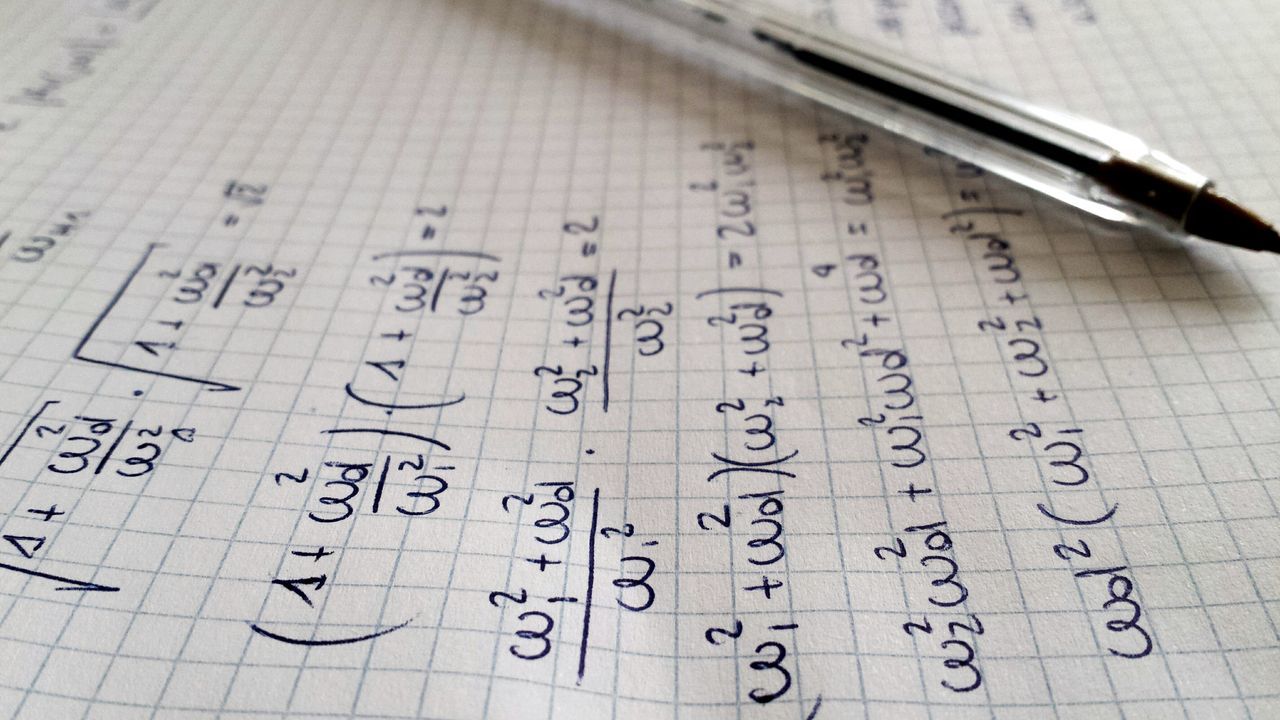 √(1 + ωd²/ω1²) · √(1 + ωd²/ω2²) = √2
(1 + ωd²/ω1²) · (1 + ωd²/ω2²) = 2
(ω1² + ωd²)/ω1² · (ω2² + ωd²)/ω2² = 2
(ω1² + ωd²)(ω2² + ωd²) = 2ω1²ω2²
ω2²ωd² + ω1²ωd² + ωd⁴ = ω1²ω2²
ωd²(ω1² + ω2² + ωd²) =